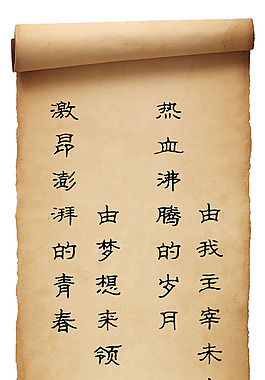 激昂澎湃的青春
由梦想来领
热血沸腾的岁月
由我主宰未